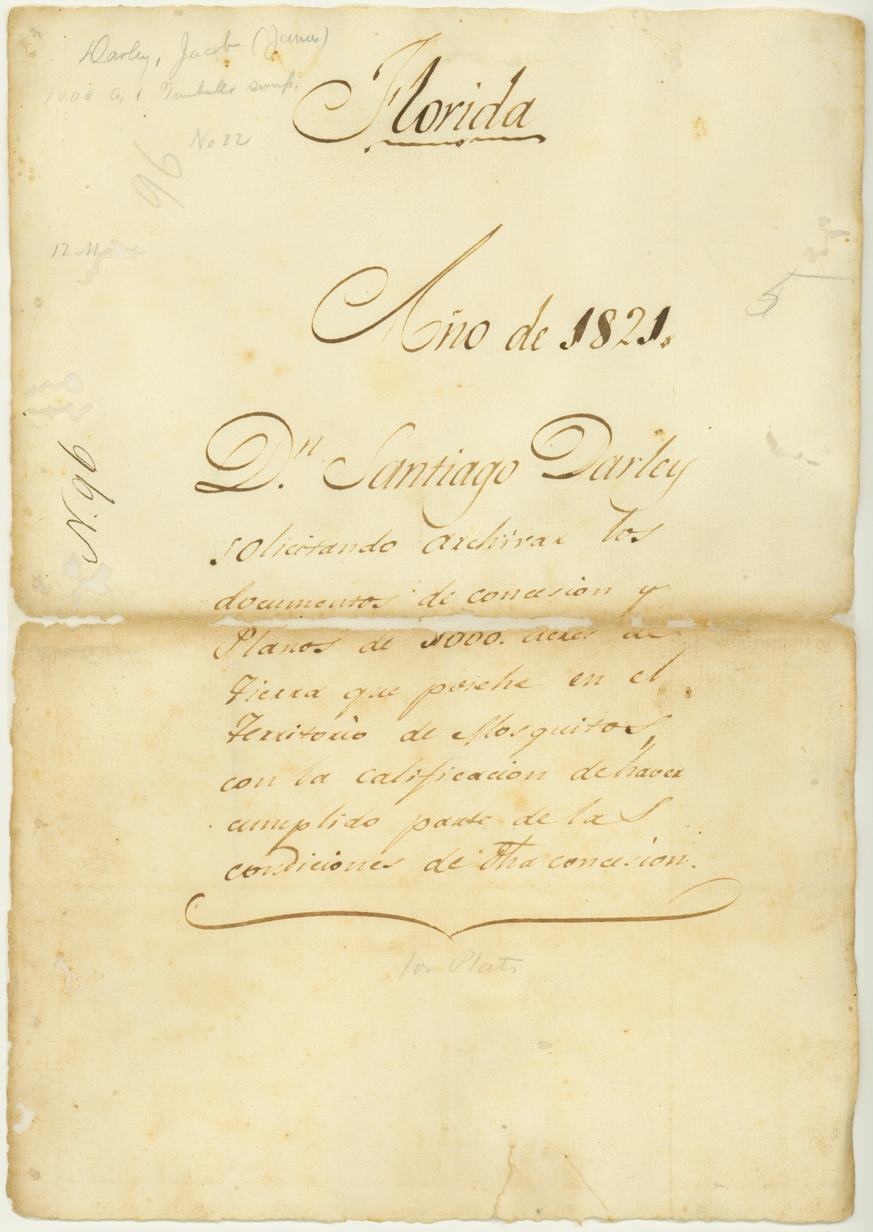 Darley, Jacob (James)
1000 a. Turnbulls swamp.
No 22
96
12 M
Florida
5
Año de 1821.
N. 96
D.n Santiago Darley
solicitando archivar los
documentos de concesion y
Planos de 1000. acres de
tierra que posehe en el
territorio de Mosquitos,
con la calificacion de haver
cumplido parte de las
condiciones de dha concesion.
for Plat